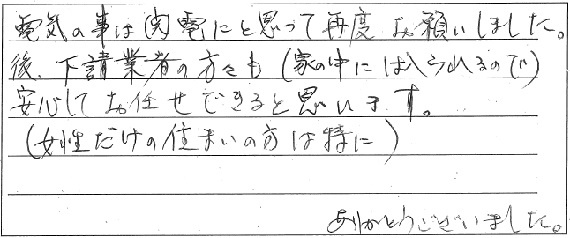 電気の事は関電にと思って再度お願いしました。
後、下請業者の方々も(家の中には入られるので)
安心してお任せできると思います。
(女性だけの住まいの方は特に)
ありがとうございました。